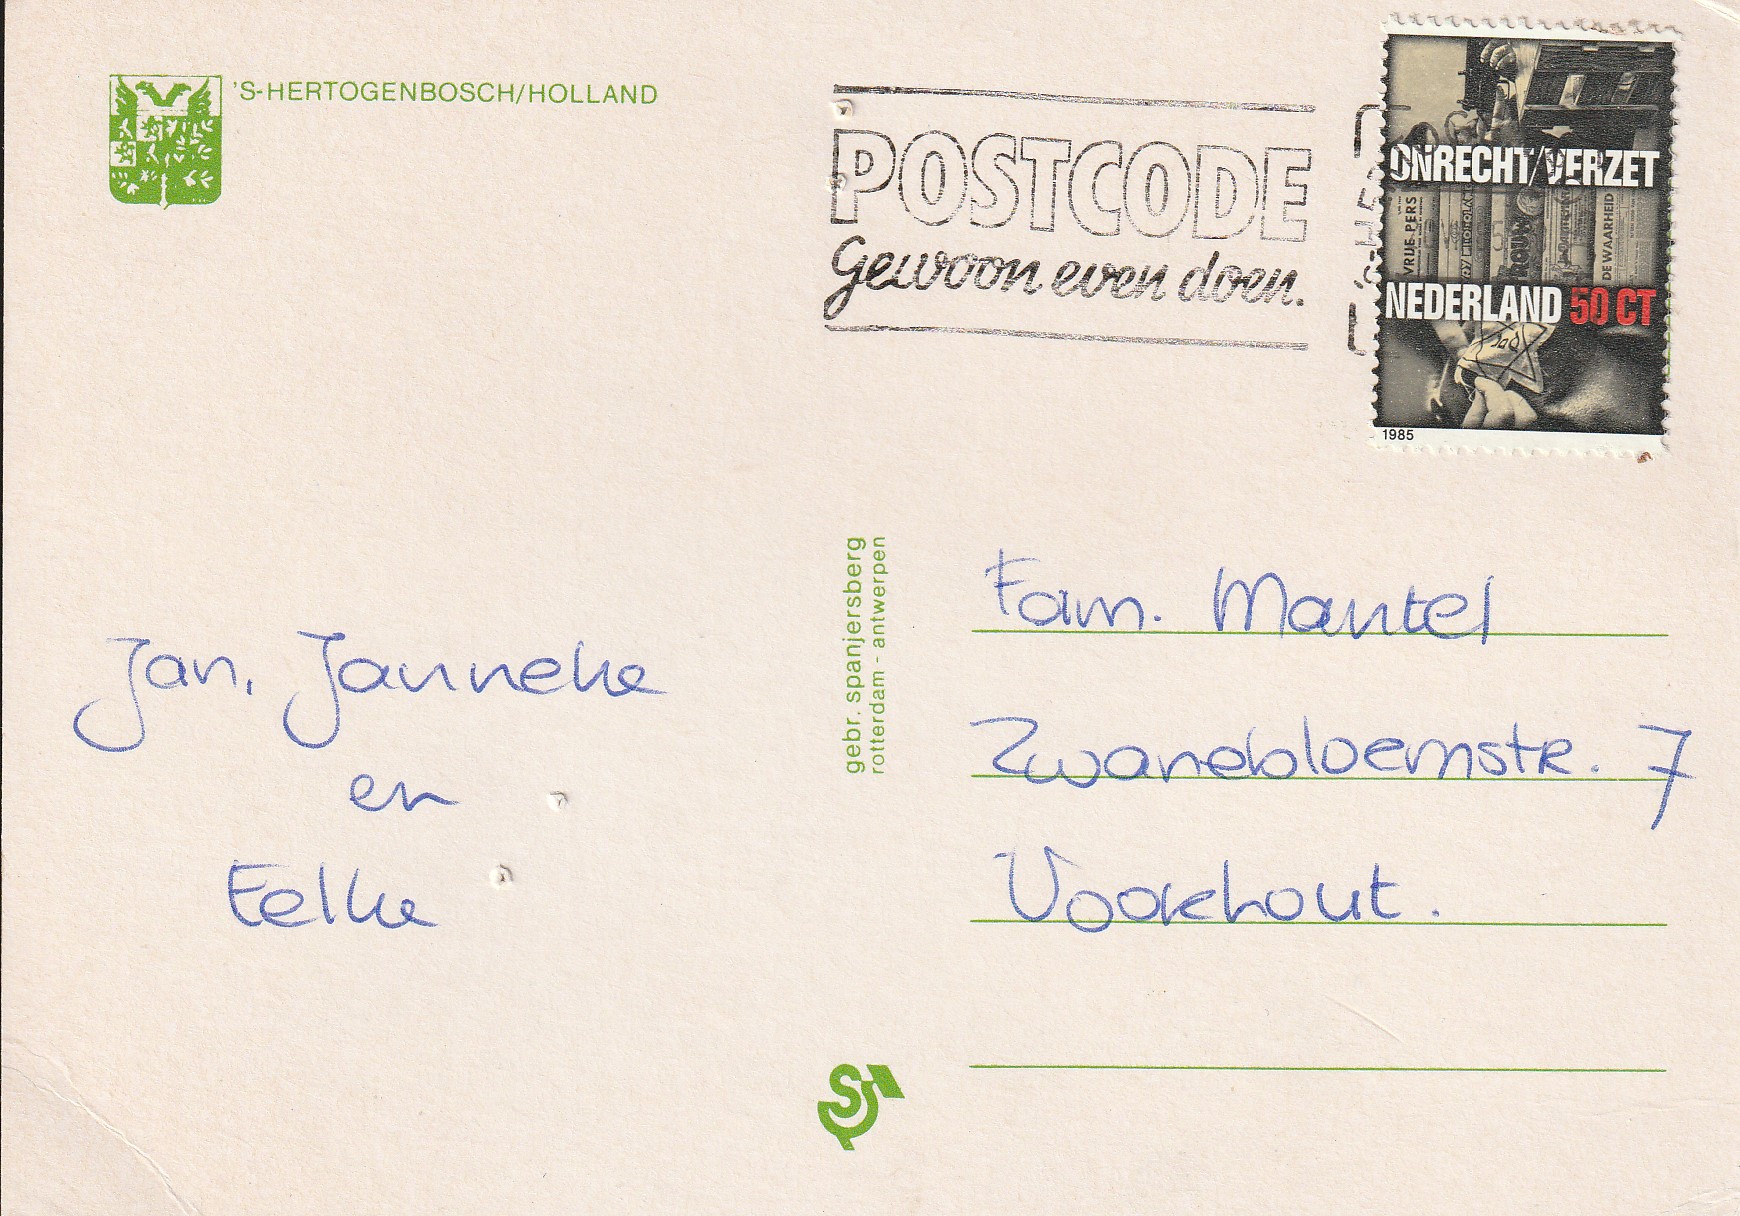 'S-HERTOGENBOSCH/HOLLAND
POSTCODE
Gewoon even doen.
ONRECHT/VERZET
VRIJE PERS
DE WAARHEID
NEDERLAND 50 CT
Jood
1985
gebr. spanjersberg
rotterdam - antwerpen
Jan, Janneke
en
Eelke
Fam. Mantel
Zwanebloemstr. 7
Voorhout.
S